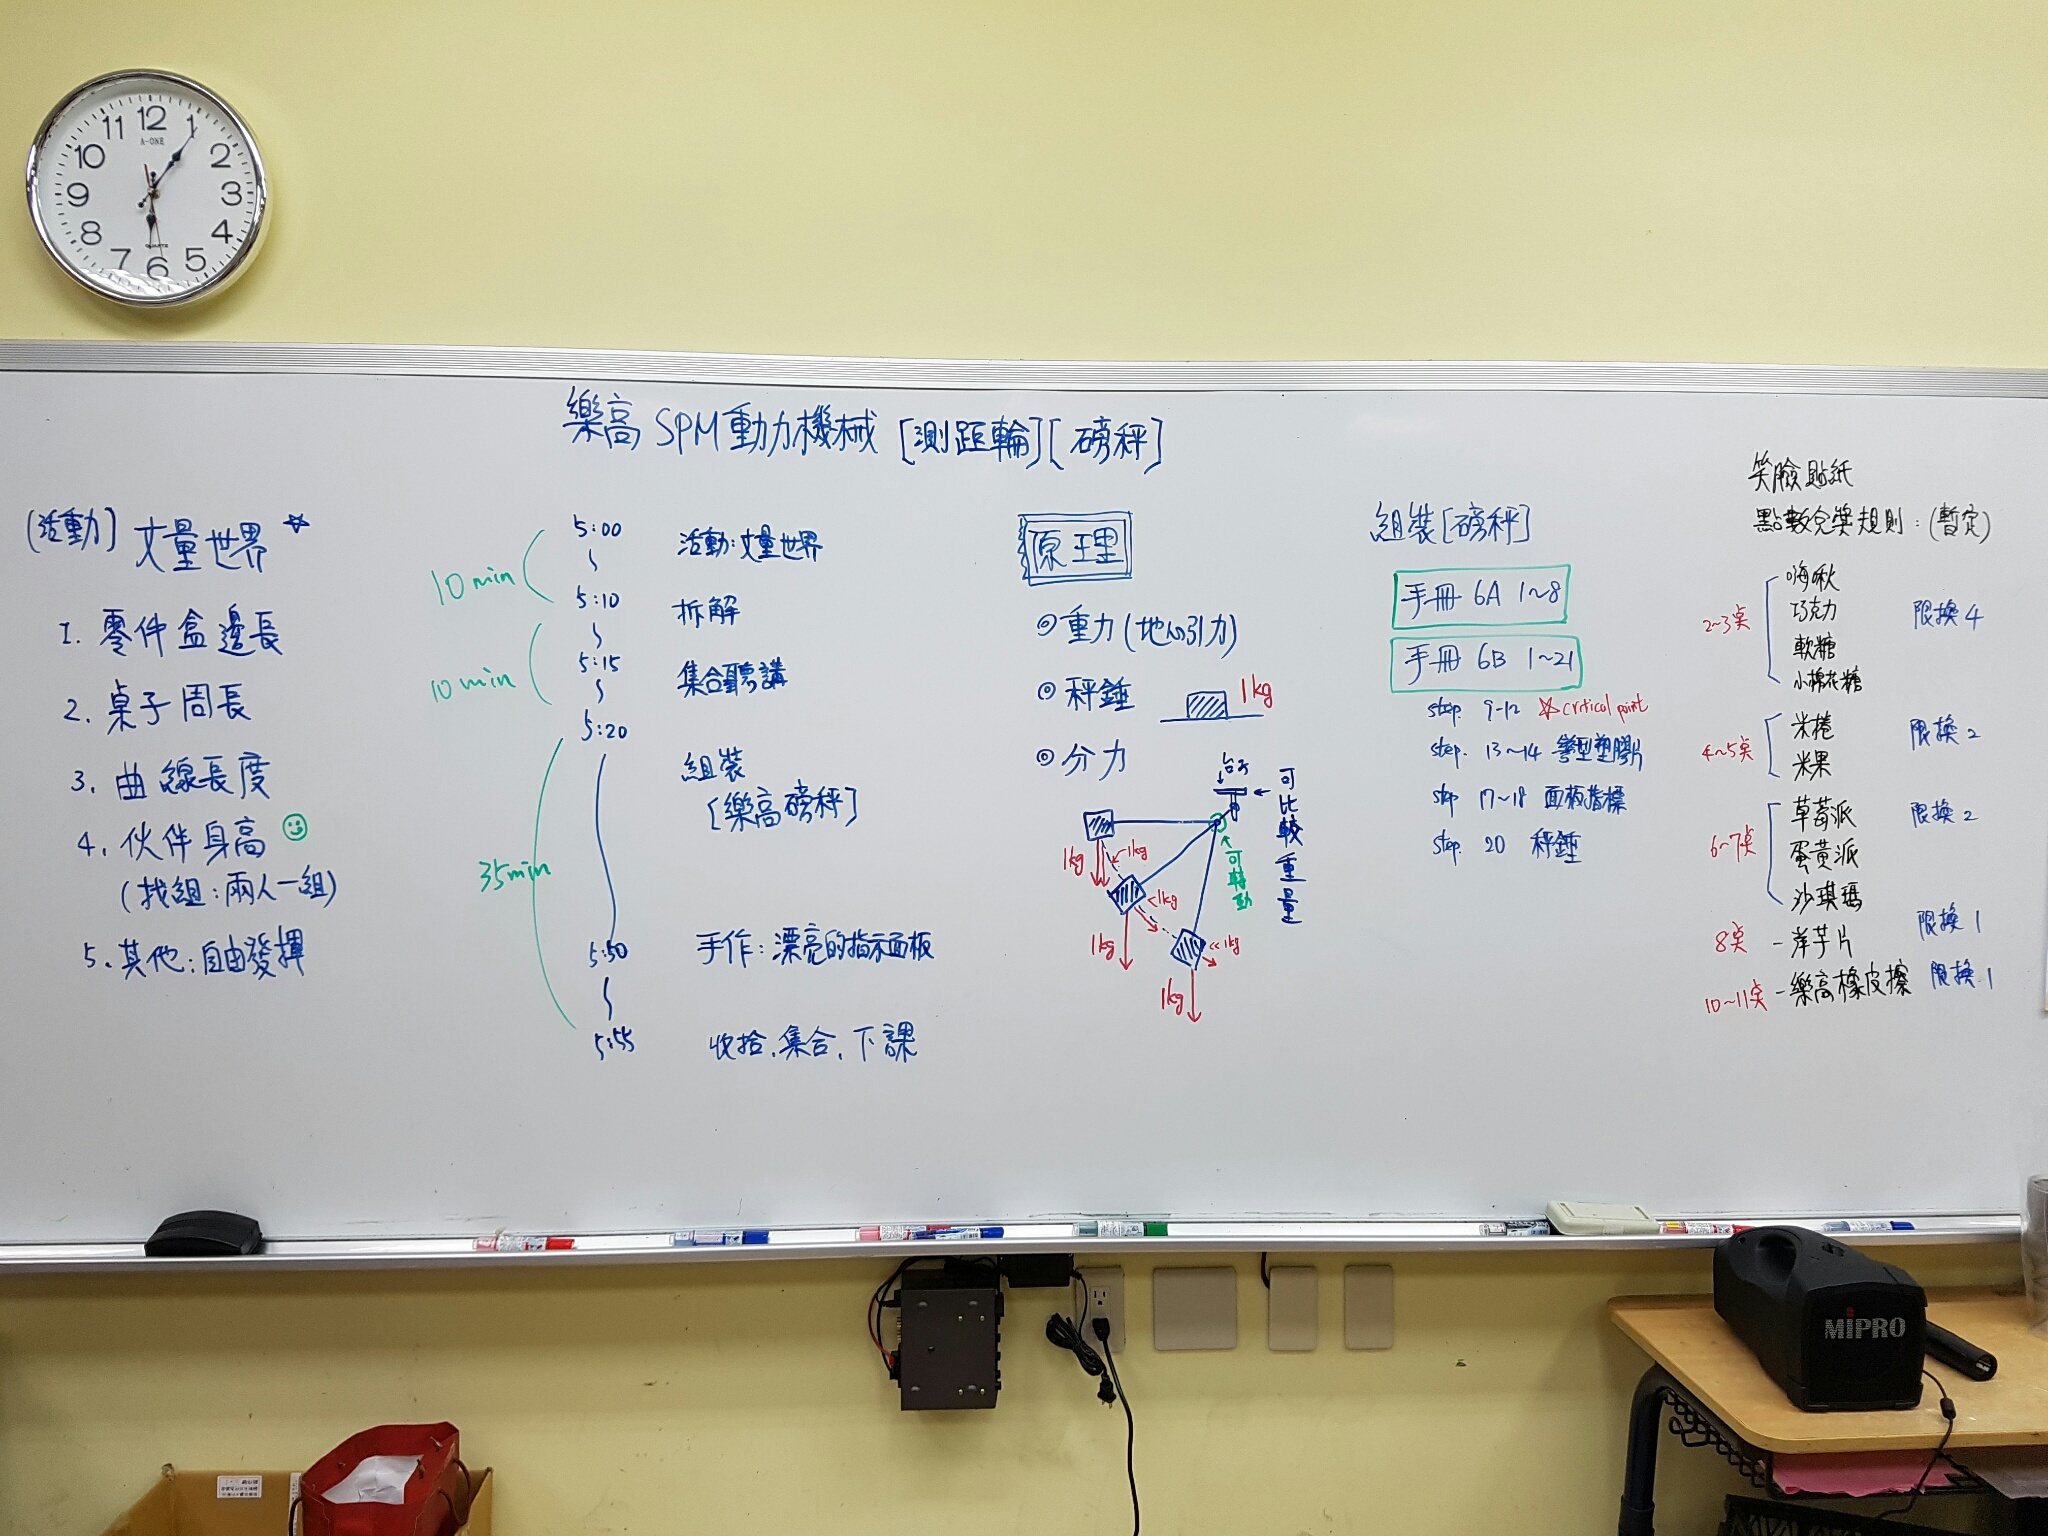 12
1
2
3
4
5
6
7
8
9
10
11
A-ONE
QUARTZ
樂高 SPM動力機械 [測距輪][磅秤]
(活動) 丈量世界 ☆
1. 零件盒邊長
2. 桌子周長
3. 曲線長度
4. 伙伴身高
(找組:兩人一組)
5. 其他:自由發揮
10 min
10 min
35min
5:00
活動:丈量世界
5:10
拆解
5:15
集合聽講
5:20
組裝
[樂高磅秤]
5:50
手作:漂亮的指示面板
5:55
收拾、集合、下課
原理
◎重力(地心引力)
◎秤錘
1kg
◎分力
可比較重量
可轉動
1kg
<1kg
1kg
<1kg
1kg
<<1kg
組裝[磅秤]
手冊 6A 1~8
手冊 6B 1~21
step. 9-12 ☆critical point
step. 13~14 彎型塑膠片
step 17~18 面板指標
step. 20 秤錘
笑臉貼紙
點數兌獎規則:(暫定)
2~3点
嗨啾
巧克力
軟糖
小棉花糖
限換4
4~5点
米捲
米果
限換2
6~7点
草莓派
蛋黃派
沙琪瑪
限換2
8点 - 洋芋片 限換1
10~11点 - 樂高橡皮擦 限換1
MIPRO